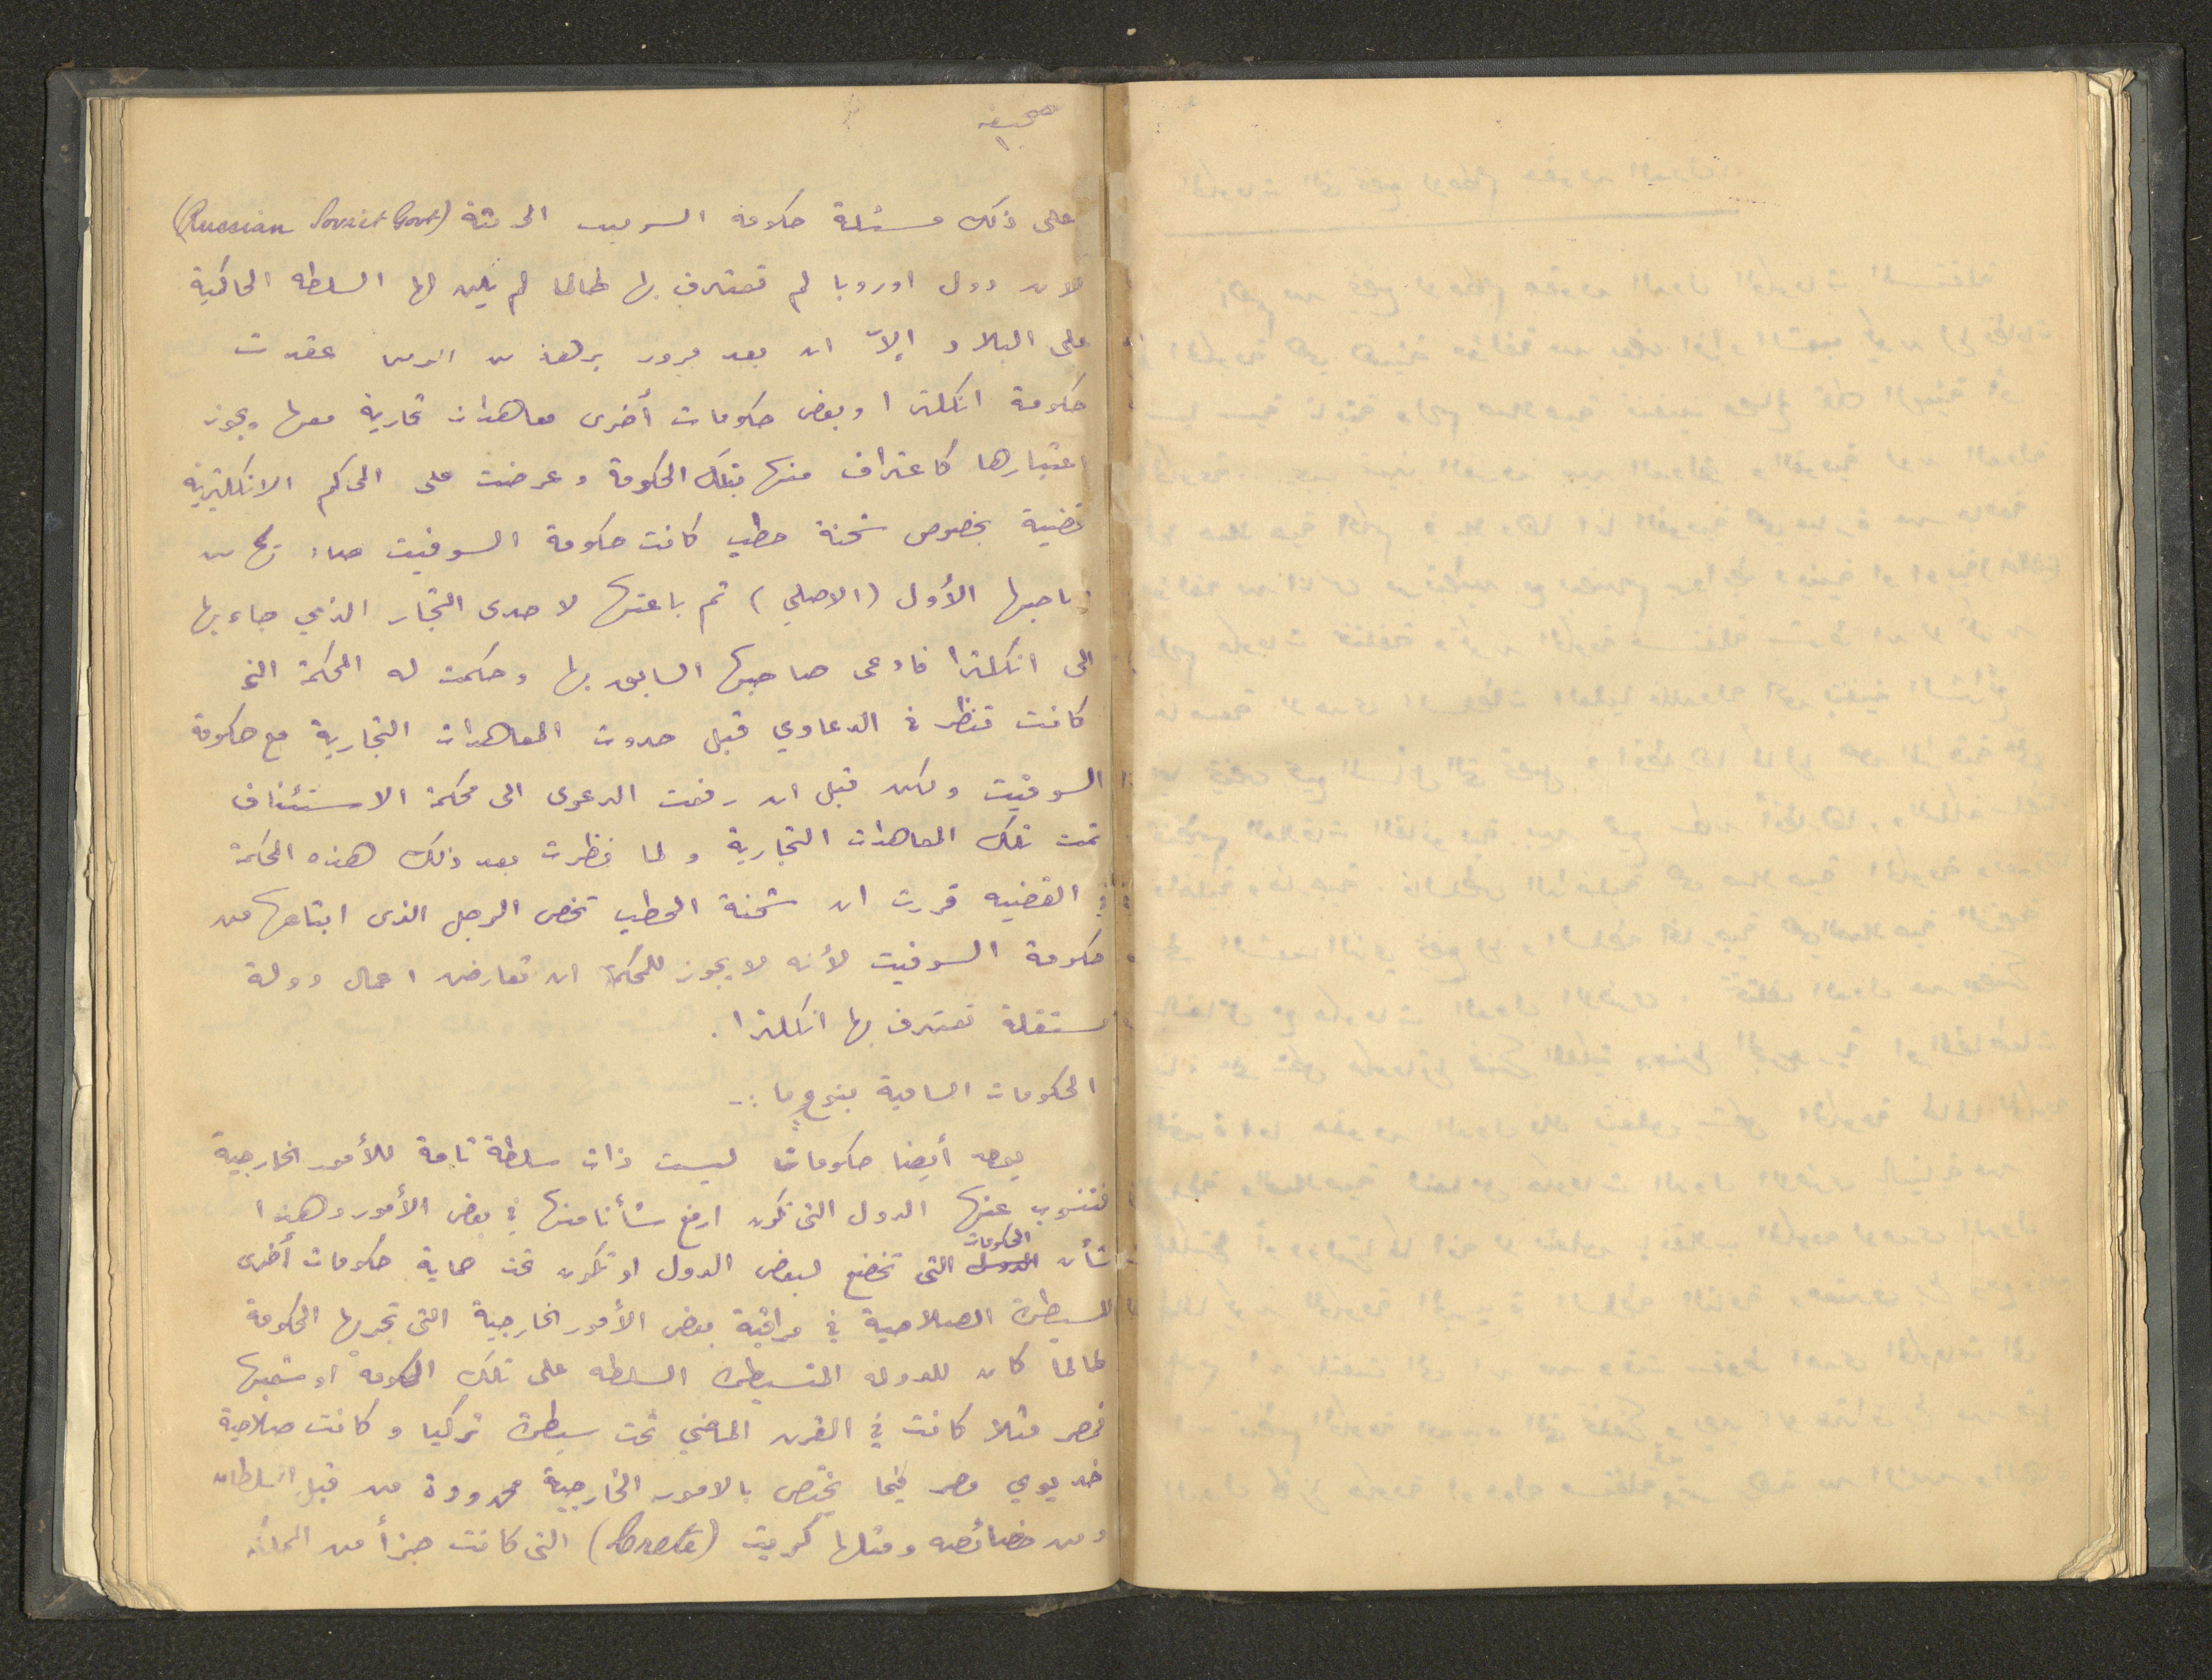 صحيفه
١
على ذلك مسئلة حكومة السوفيت الحديثة (Russian Soviet Govt)
لان دول اوروبا لم تعترف بها طالما لم يكن لها السلطه الحاكمية
على البلاد إلاّ ان بعد مرور برهة من الزمن عقدت
حكومة انكلترا وبعض حكومات أخرى معاهدات تجارية معها ويجوز
اعتبارها كاعتراف منها بتلك الحكومة وعرضت على المحاكم الانكليزية
قضية بخصوص شحنة حطب كانت حكومة السوفيت صادرتها من
صاحبها الأول (الاصلي) ثم باعتها لاحدى التجار الذي جاء بها
الى انكلترا فادعى صاحبها السابق بها وحكمت له المحكمة التي
كانت تنظر في الدعاوي قبل حدوث المعاهدات التجارية مع حكومة
السوفيت ولكن قبل ان رفعت الدعوى الى محكمة الاستئناف
تمت تلك المعاهدات التجارية ولما نظرت بعد ذلك هذه المحكمة
في القضيه قررت ان شحنة الحطب تخص الرجل الذى ابتاعها من
حكومة السوفيت لأنه لا يجوز للمحكمة ان تعارض اعمال دولة
مستقلة تعترف بها انكلترا.
الحكومات السامية بنوع ما :-
يوجد أيضا حكومات ليست ذات سلطة تامة للأمور الخارجية
فتنوب عنها الدول التى تكون ارفع شأنا منها في بعض الأمور وهذا
شأن الدول الحكومات التى تخضع لبعض الدول او تكون تحت حماية حكومات أخرى
للسيطرة الصلاحية في مراقبة بعض الأمور الخارجية التى تجريها الحكومة
طالما كان للدوله المتسيطرة السلطه على تلك الحكومه او شعبها
فمصر مثلا كانت في القرن الماضي تحت سيطرة تركيا وكانت صلاحية
خديوي مصر فيما يختص بالامور الخارجية محدودة من قبل السلطان
ومن خصائصه ومثلها كريت (Crete) التى كانت جزأ من